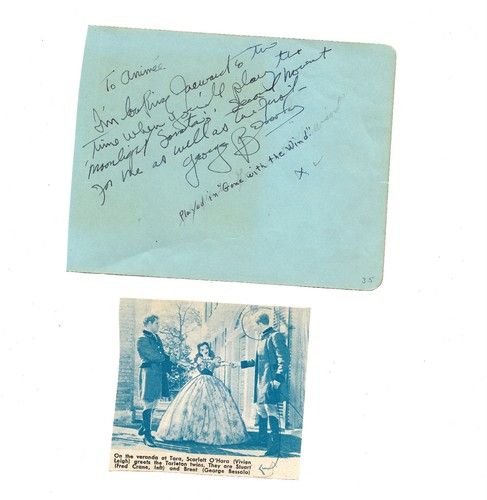 To Animée
I'm looking foreward to the
time when you'll play the
'Moonlight Sonata's' Second movement
for me as well as the first—
George Bessolo
Played in "Gone with the Wind"
x
35
On the veranda at Tara, Scarlett O'Hara (Vivien
Leigh) greets the Tarleton twins. They are Stuart
(Fred Crane, left) and Brent (George Bessolo)